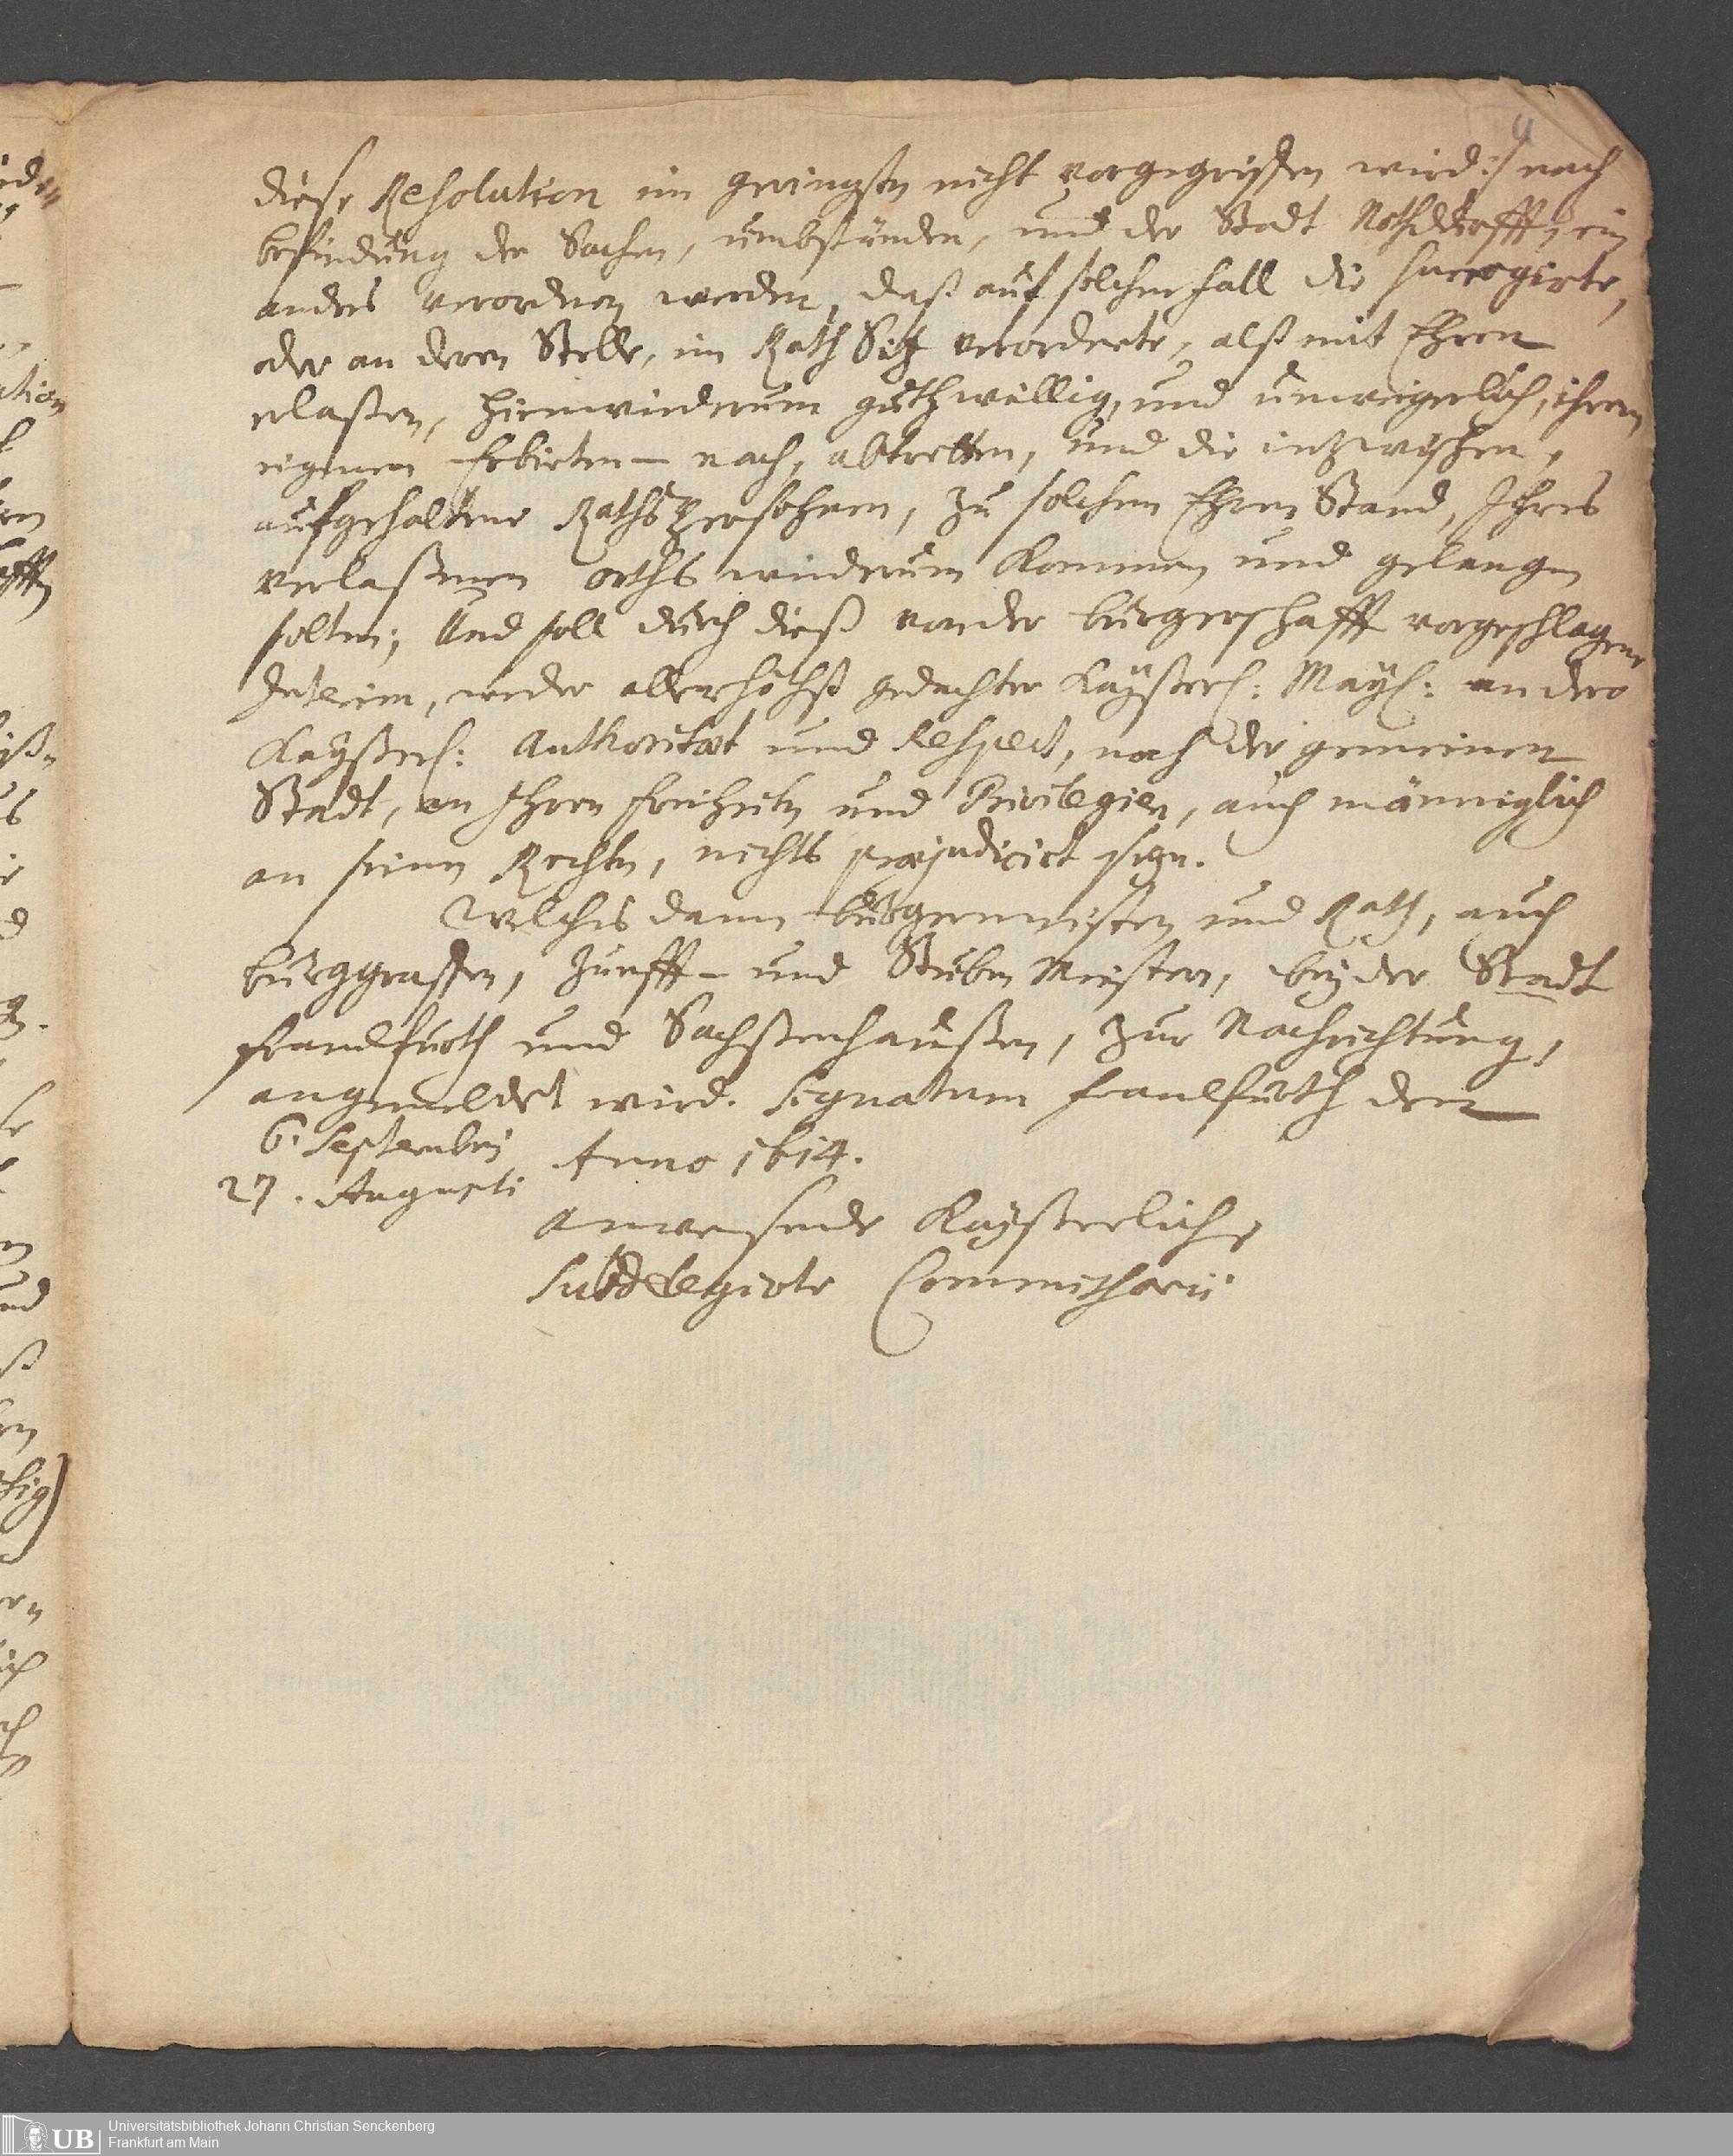 4
diese Resolution im geringsten nicht vorgegriffen wird :/ nach
befindung der Sachen, umbständen, und der Stadt Nothdürfft, ein
anders verordnen werden, daß auf solchen fall die surrogirte,
oder an deren Stelle, im Rath Sitz verordnete, alß mit Ehren
erlaßen, hienwiederum guthwillig, und unweigerlich, ihrem
eigenen Erbieten nach, abtretten, und die inzwischen,
aufgehaltene Raths Persohnen, zu solchem Ehren Stand, Ihres
verlaßenen orths wiederum kommen und gelangen
solten; Und soll durch dieß von der burgerschafft vorgeschlagene
Interim, weder allerhöchst gedachter Kayßerl: Mayl: an dero
Kayßerl: Authoritæt und Respect, noch der gemeinen
Stadt, an Ihren freiheiten und Privilegien, auch männiglich
an seinen Rechten, nichts præjudicirt seyn.
Welches dann burgermeistern und Rath, auch
burggraffen, Zunfft- und Stuben Meistern, bey der Stadt
Franckfurth und Sachßenhaußen, zur Nachrichtung,
angemeldet wird. Signatum Franckfurth den
6. Septembris
27. Augusti
Anno 1614.
Anwesende Kayßerliche
Subdelegirte Commissarii
UB
Universitätsbibliothek Johann Christian Senckenberg
Frankfurt am Main